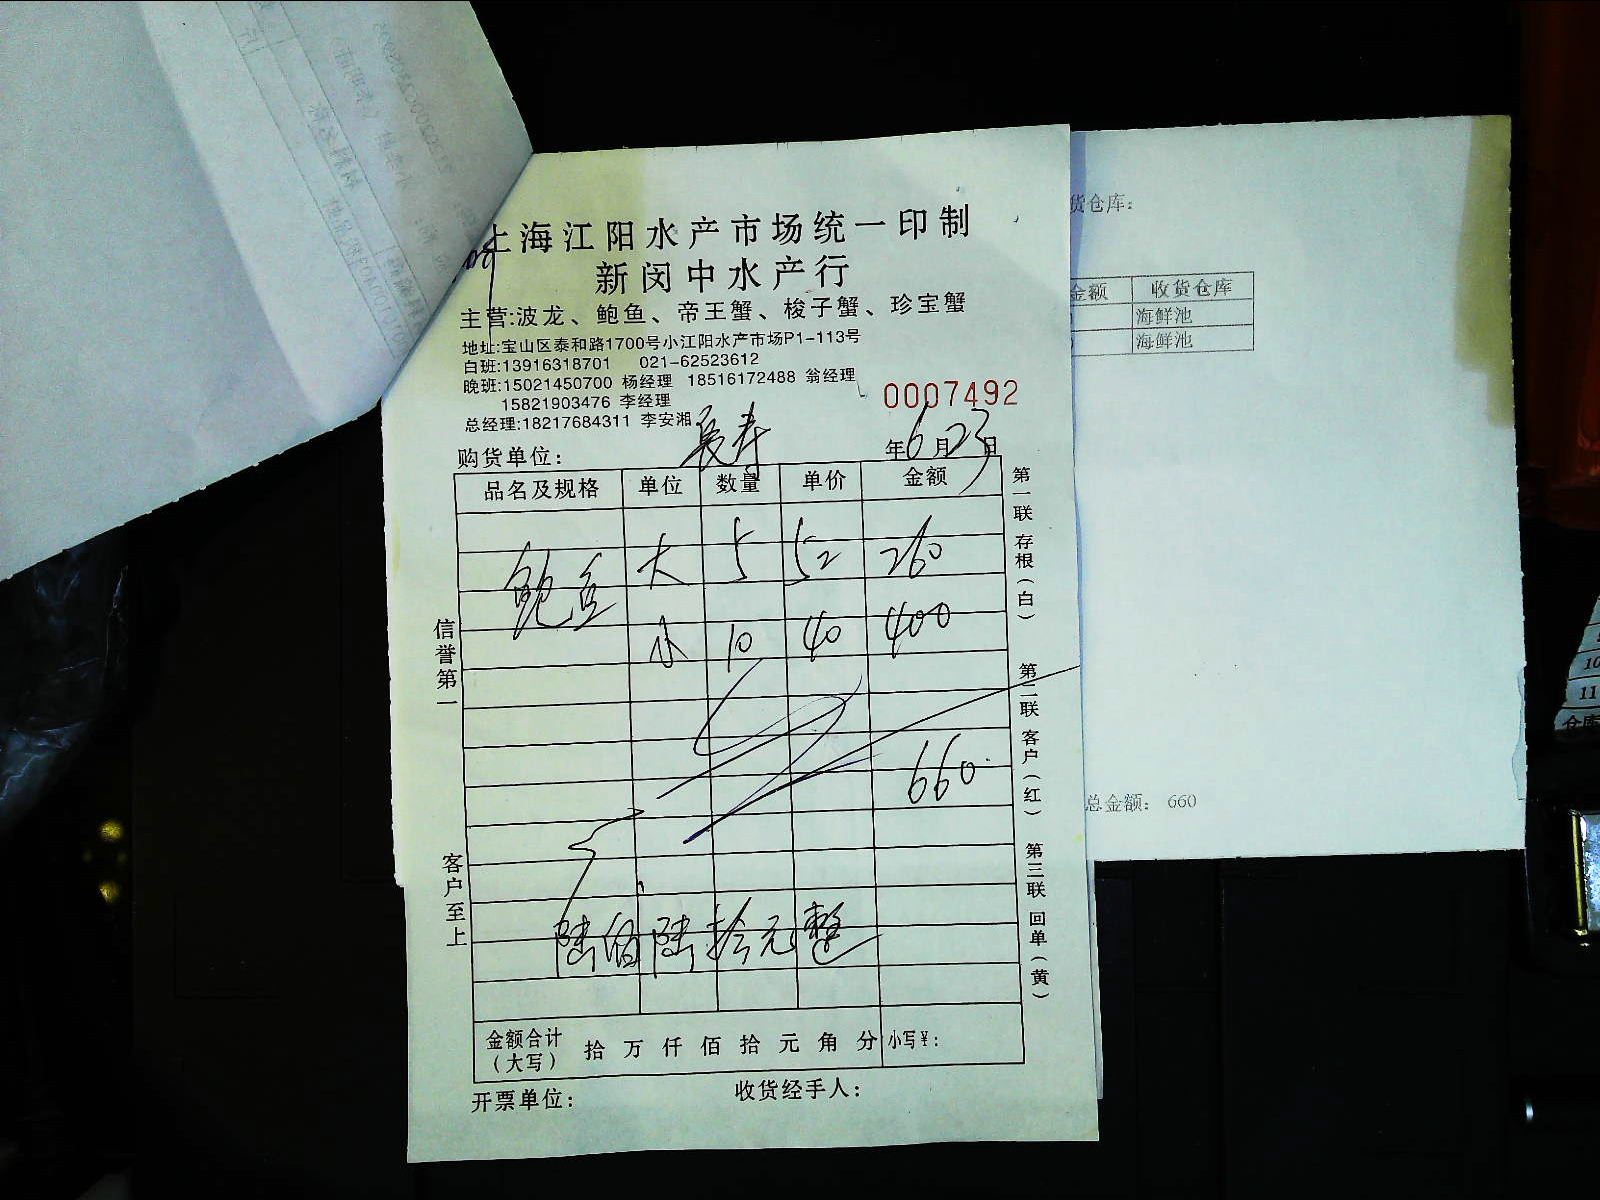 上海江阳水产市场统一印制
新闵中水产行
主营:波龙、鲍鱼、帝王蟹、梭子蟹、珍宝蟹
地址:宝山区泰和路1700号小江阳水产市场P1-113号
白班:13916318701 021-62523612
晚班:15021450700 杨经理 18516172488 翁经理
15821903476 李经理
总经理:18217684311 李安湘
0007492
购货单位: 长寿 年6月23日
品名及规格 单位 数量 单价 金额
鲍鱼 大 5 52 260
小 10 40 400
660
陆佰陆拾元整
金额合计(大写) 拾万仟佰拾元角分 小写¥:
开票单位: 收货经手人:
信誉第一
客户至上
第一联 存根(白)
第二联 客户(红)
第三联 回单(黄)
货仓库:
金额 收货仓库
海鲜池
海鲜池
总金额: 660
10
11
仓库